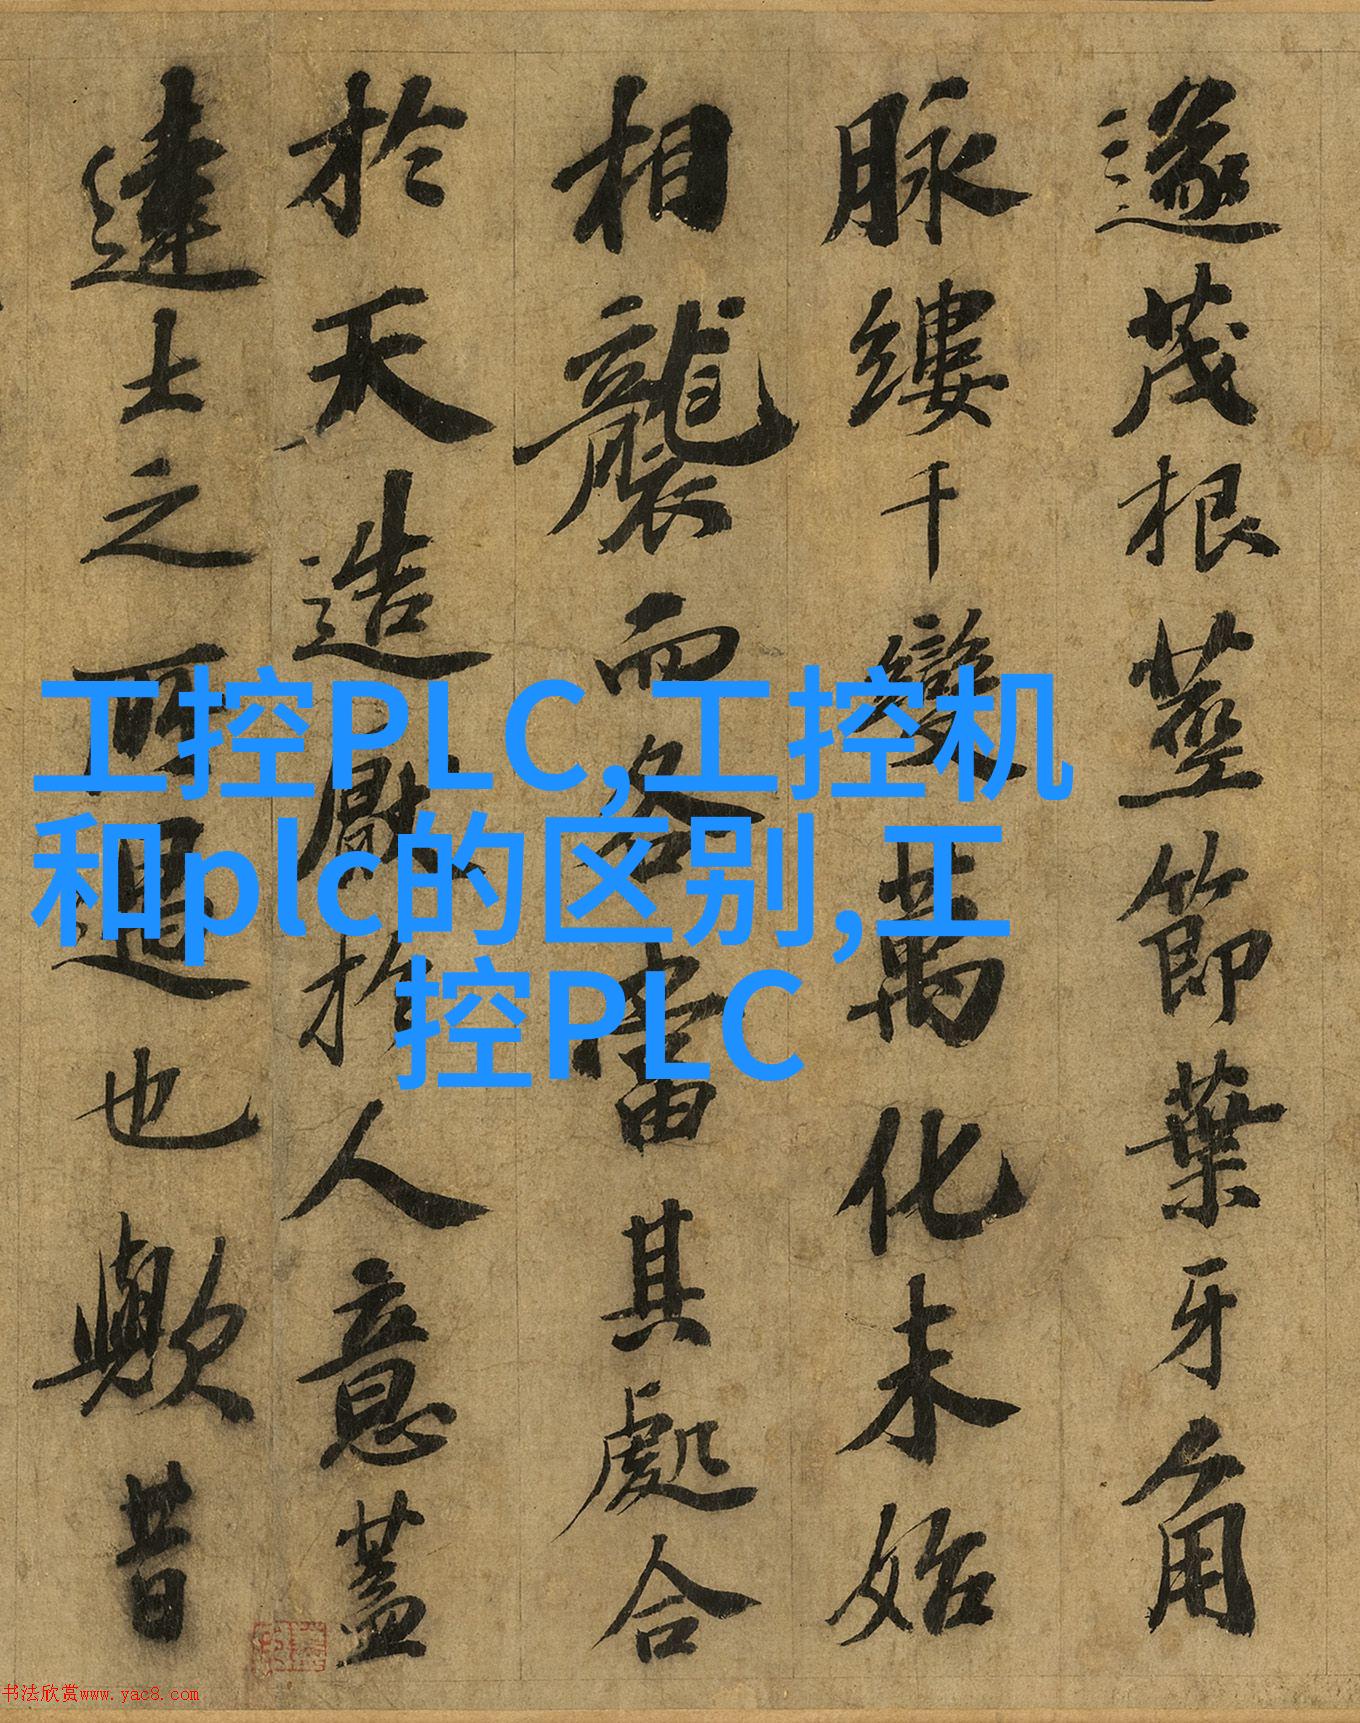 遂茂根莖節葉牙角
脉縷千變萬化未始
相襲而各當其處合
於天造厭於人意蓋
達士之所寓也歟昔
工控PLC,工控机
和plc的区别,工
控PLC
书法欣赏www.yac8.com